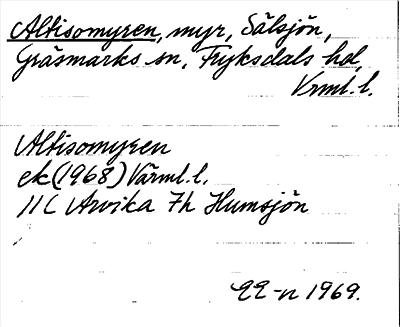 Altisomyren, myr, Sälsjön,
Gräsmarks sn, Fryksdals hd,
Vrml. l.
Altisomyren
ek (1968) Värml. l.
11C Arvika 7h Humsjön
1969.